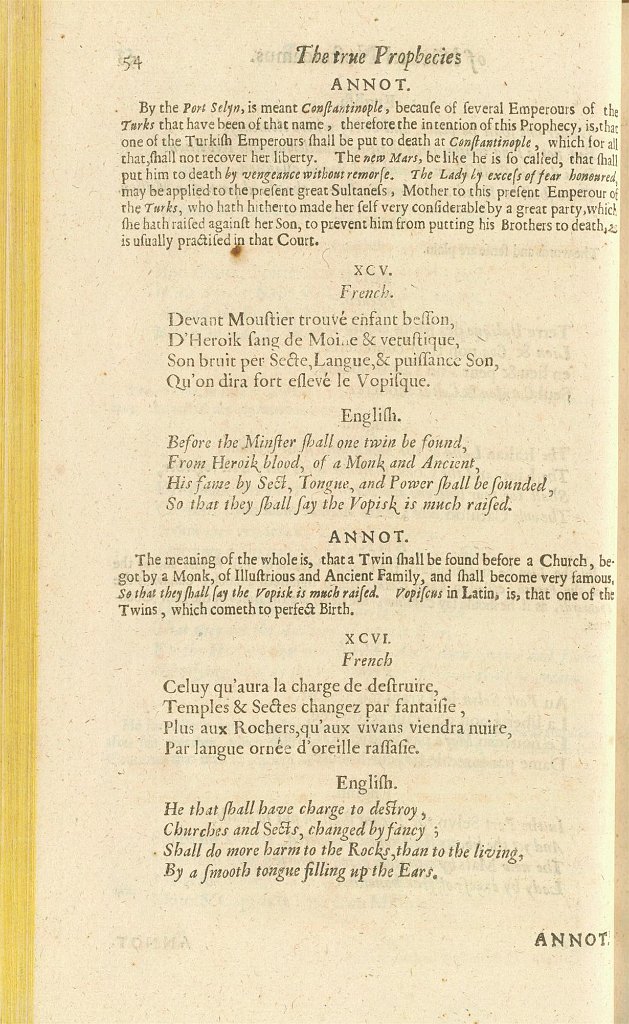 54 The true Prophecies
ANNOT.
By the Port Selyn, is meant Conſtantinople, becauſe of ſeveral Emperours of the
Turks that have been of that name, therefore the intention of this Prophecy, is, that
one of the Turkiſh Emperours ſhall be put to death at Conſtantinople, which for all
that, ſhall not recover her liberty. The new Mars, belike he is ſo called, that ſhall
put him to death by vengeance without remorſe. The Lady by exceſs of fear honoured,
may be applied to the preſent great Sultaneſs, Mother to this preſent Emperour of
the Turks, who hath hitherto made her ſelf very conſiderable by a great party, which
ſhe hath raiſed againſt her Son, to prevent him from putting his Brothers to death, as
is uſually practiſed in that Court.
XCV.
French.
Devant Mouſtier trouvé enfant beſſon,
D'Heroik ſang de Moine & vetuſtique,
Son bruit per Secte, Langue, & puiſſance Son,
Qu'on dira fort eſlevé le Vopiſque.
Engliſh.
Before the Minſter ſhall one twin be found,
From Heroik blood, of a Monk and Ancient,
His fame by Sect, Tongue, and Power ſhall be ſounded,
So that they ſhall ſay the Vopisk is much raiſed.
ANNOT.
The meaning of the whole is, that a Twin ſhall be found before a Church, be-
got by a Monk, of Illuſtrious and Ancient Family, and ſhall become very famous,
So that they ſhall ſay the Vopisk is much raiſed. Vopiſcus in Latin, is, that one of the
Twins, which cometh to perfect Birth.
XCVI.
French
Celuy qu'aura la charge de deſtruire,
Temples & Sectes changez par fantaiſie,
Plus aux Rochers, qu'aux vivans viendra nuire,
Par langue ornée d'oreille raſſaſie.
Engliſh.
He that ſhall have charge to deſtroy,
Churches and Sects, changed by fancy;
Shall do more harm to the Rocks, than to the living,
By a ſmooth tongue filling up the Ears.
ANNOT.